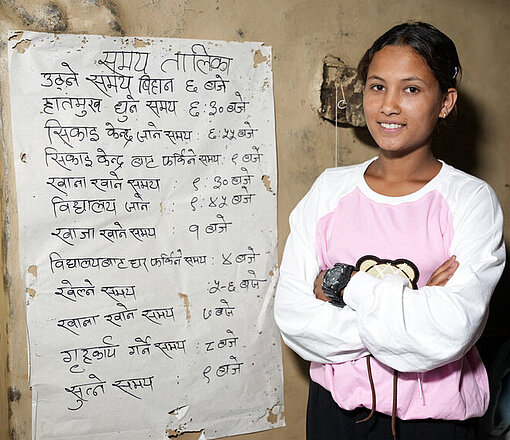 समय तालिका
उठ्ने समय बिहान ६ बजे
हातमुख धुने समय ६:३० बजे
सिकाइ केन्द्र जाने समय : ६:५५ बजे
सिकाइ केन्द्र बाट फर्किने समय : ९ बजे
खाना खाने समय : ९:३० बजे
विद्यालय जाने : ९:४५ बजे
खाजा खाने समय : १ बजे
विद्यालयबाट घर फर्किने समय : ४ बजे
खेल्ने समय : ५-६ बजे
खाना खाने समय : ७ बजे
गृहकार्य गर्ने समय : ८ बजे
सुत्ने समय : ९ बजे